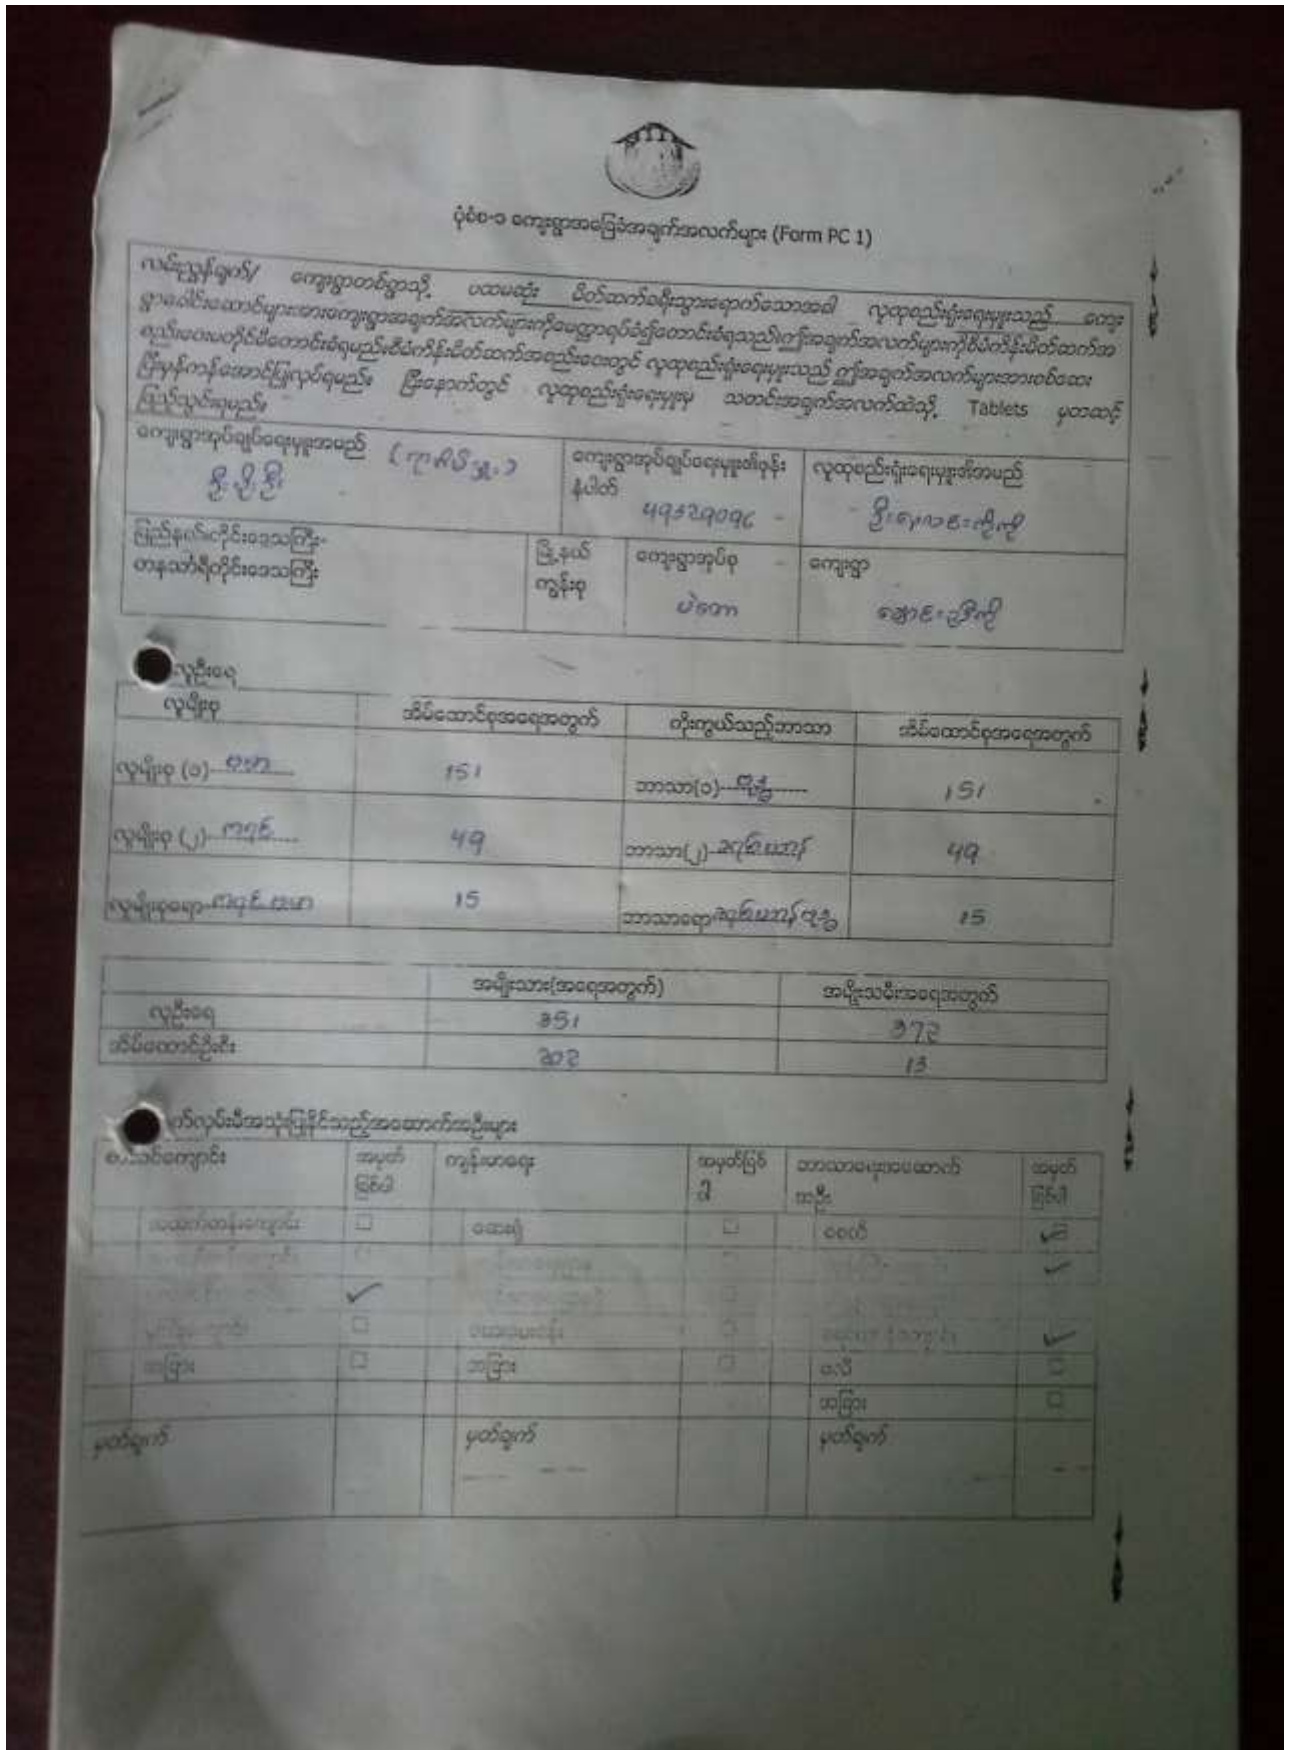 ပုံစံစ-၁ ကျေးရွာအခြေခံအချက်အလက်များ (Form PC 1)
လမ်းညွှန်ချက်/ ကျေးရွာတစ်ရွာသို့ ပထမဆုံး မိတ်ဆက်ခရီးသွားရောက်သောအခါ လူထုစည်းရုံးရေးမှူးသည် ကျေး
ရွာခေါင်းဆောင်များအားကျေးရွာအချက်အလက်များကိုမေတ္တာရပ်ခံ၍တောင်းခံရသည်။ဤအချက်အလက်များကိုစီမံကိန်းမိတ်ဆက်အ
စည်းဝေးမတိုင်မီတောင်းခံရမည်။စီမံကိန်းမိတ်ဆက်အစည်းဝေးတွင် လူထုစည်းရုံးရေးမှူးသည် ဤအချက်အလက်များအားစစ်ဆေး
ပြီးမှန်ကန်အောင်ပြုလုပ်ရမည်။ ပြီးနောက်တွင် လူထုစည်းရုံးရေးမှူးမှ သတင်းအချက်အလက်ထဲသို့ Tablets မှတဆင့်
ဖြည့်သွင်းရမည်။
ကျေးရွာအုပ်ချုပ်ရေးမှူးအမည် ကျေးရွာအုပ်ချုပ်ရေးမှူး၏ဖုန်း လူထုစည်းရုံးရေးမှူး၏အမည်
နံပါတ်
ပြည်နယ်/တိုင်းဒေသကြီး- မြို့နယ် ကျေးရွာအုပ်စု ကျေးရွာ
တနင်္သာရီတိုင်းဒေသကြီး ကျွန်းစု
ပဲတော
လူဦးရေ
လူမျိုးစု အိမ်ထောင်စုအရေအတွက် ကိုးကွယ်သည့်ဘာသာ အိမ်ထောင်စုအရေအတွက်
လူမျိုးစု (၁) ဗမာ 151 ဘာသာ(၁) ဗုဒ္ဓ 151
လူမျိုးစု (၂) ကရင် 49 ဘာသာ(၂) ခရစ်ယာန် 49
လူမျိုးစုရော ကရင် ဗမာ 15 ဘာသာရော ခရစ်ယာန် ဗုဒ္ဓ 15
အမျိုးသား(အရေအတွက်) အမျိုးသမီးအရေအတွက်
လူဦးရေ 351 372
အိမ်ထောင်ဦးစီး 202 13
လက်လှမ်းမီအသုံးပြုနိုင်သည့်အဆောက်အဦးများ
စာသင်ကျောင်း အမှတ် ကျန်းမာရေး အမှတ်ခြစ် ဘာသာရေးအဆောက် အမှတ်
ခြစ်ပါ ပါ အဦး ခြစ်ပါ
အထက်တန်းကျောင်း ☐ ဆေးရုံ ☐ စေတီ ✓
✓
✓
☐ ☐ ✓
အခြား ☐ အခြား ☐ ဗလီ ☐
အခြား ☐
မှတ်ချက် မှတ်ချက် မှတ်ချက်